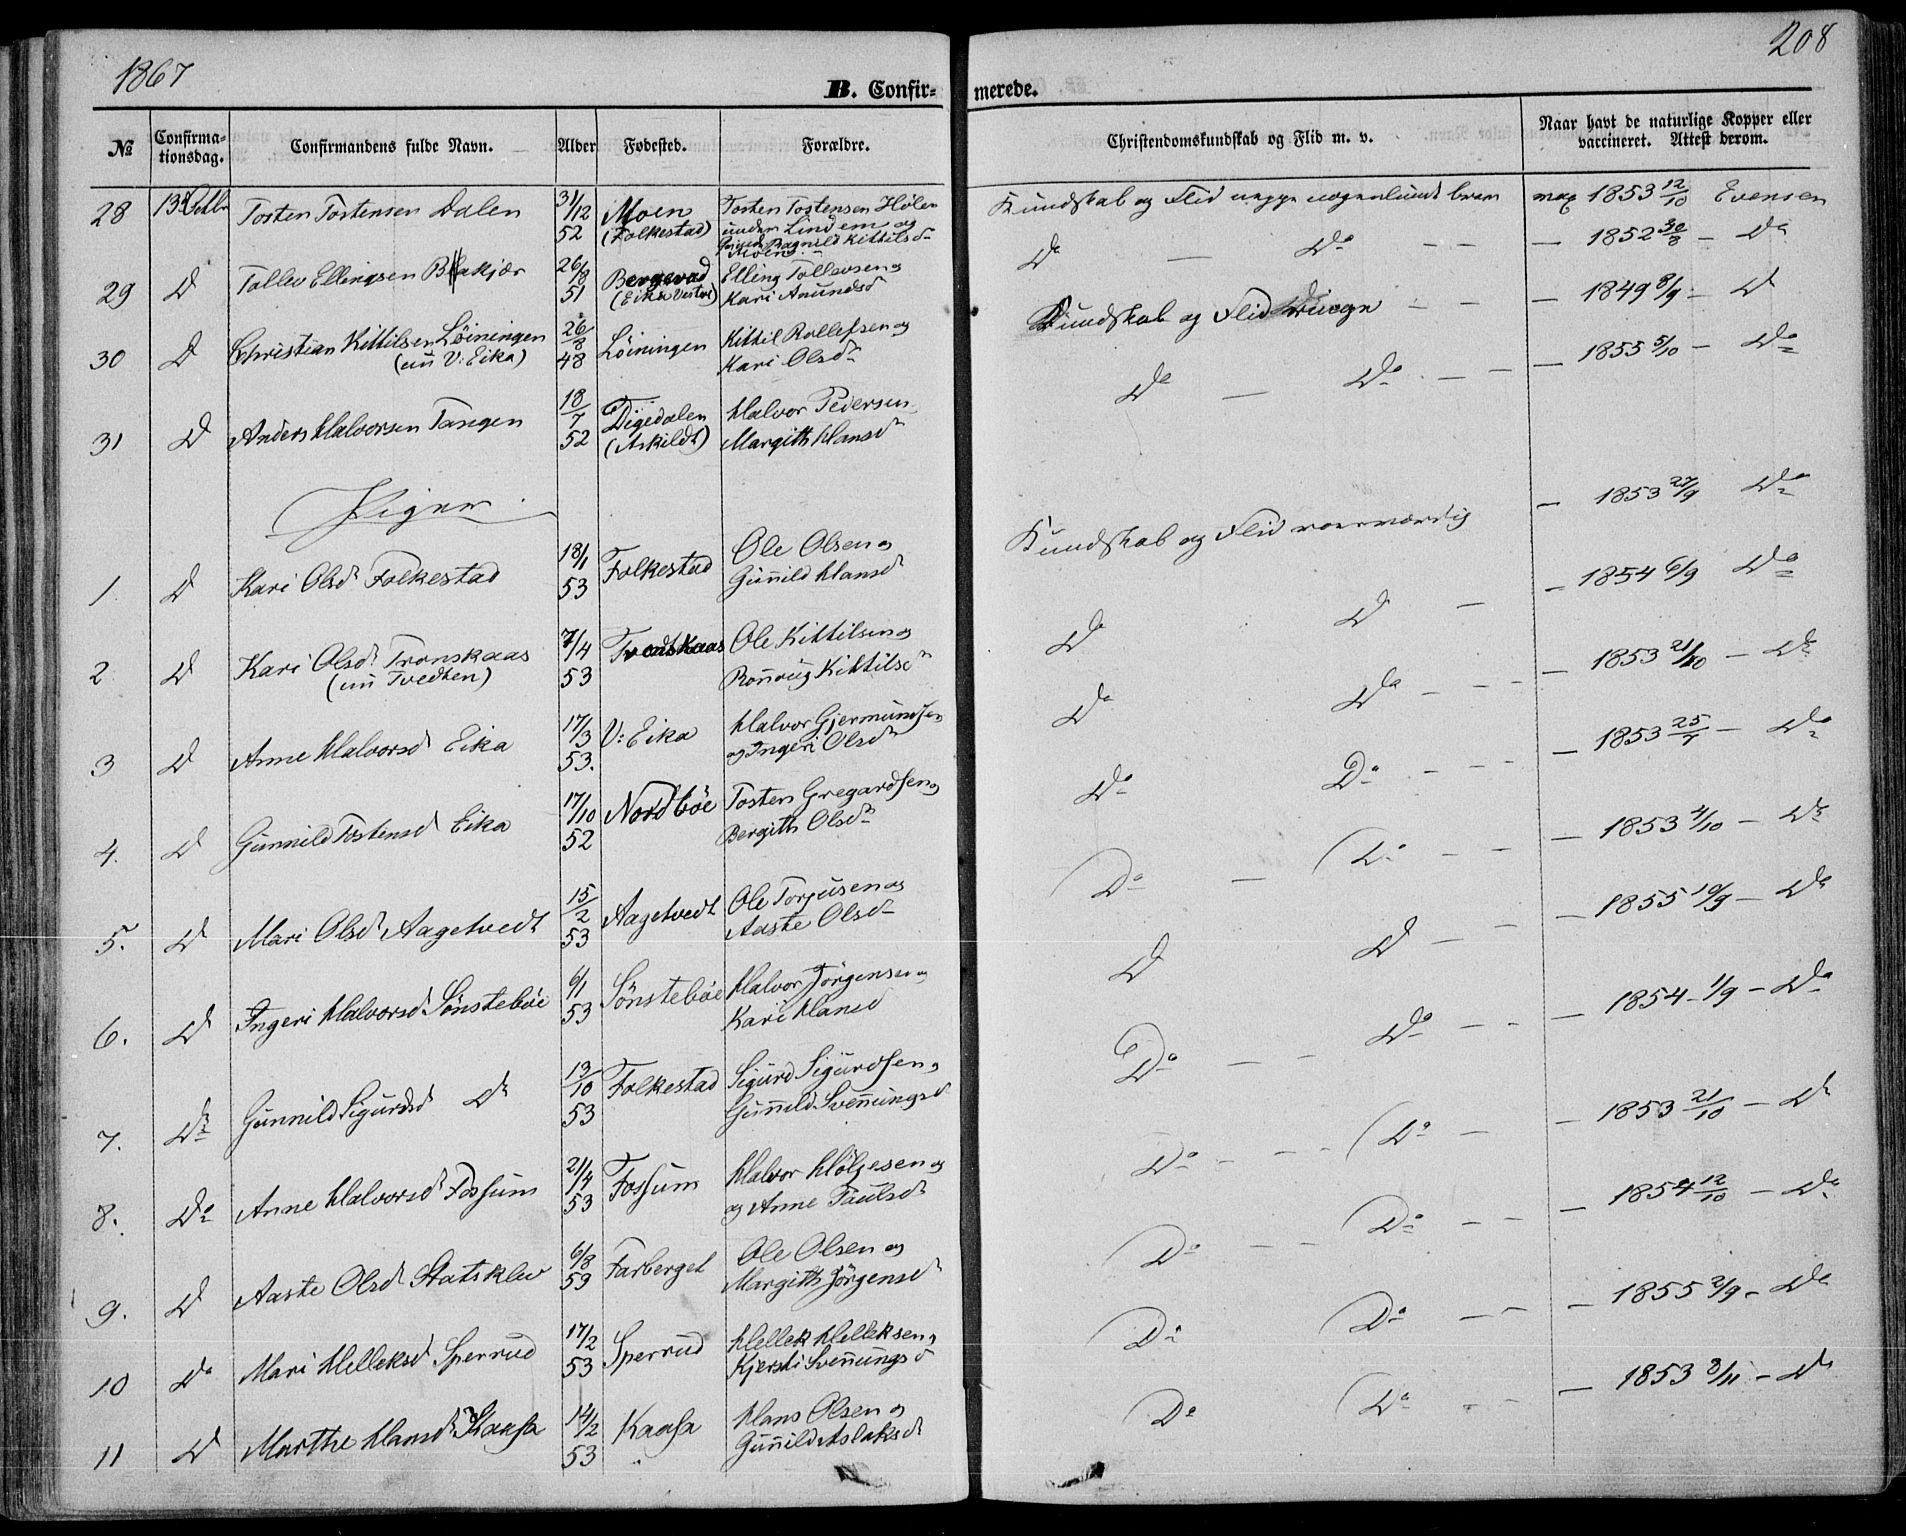 1867
208
B. Confirmerede.
№ Confirmationsdag. Confirmandens fulde Navn. Alder Fødested. Forældre. Christendomskundskab og Flid m. v. Naar havt de naturlige Kopper eller vaccineret. Attest derom.
28 13de Octbr Tosten Tostensen Dalen 31/12 52 Moen (Folkestad) Tosten Tostensen Hølen under Lindem og Ragnild Kittilsd. Moen Kundskab og Flid neppe nogenlunde 1853 12/10 Evensen
29 D Tollev Ellingsen 26/8 51 Bergerud (Eika Vestre) Elling Tollevsen og Kari Anundsd Do — Do — — — 1852 30/8 — Do
30 D Christian Kittilsen Løiningen (nu V: Eika) 26/8 48 Løiningen Kittil Rollefsen og Kari Olsdr Kundskab og Flid — — — 1849 8/9 — D
31 D Anders Halvorsen Tangen 18/7 52 Digedalen (Askildt) Halvor Pedersen Margith Hansdr Do — Do — — — 1855 5/10 — Do
Piger
1 D Kari Olsdr Folkestad 18/1 53 Folkestad Ole Olsen og Gunnild Hansd Kundskab og Flid — 1853 27/9 Do
2 D Kari Olsdr Tronskaas (nu Tvedten) 7/4 53 Tronskaas Ole Kittilsen og Ronnoug Kittilsdr D D — — 1854 6/9 Do
3 D Anne Halvorsd Eika 17/3 53. V: Eika Halvor Gjermundsen og Ingeri Olsdr Do Do — — — — 1853 21/10 — Do
4. D Gunnild Tostensd Eika 17/10 52 Nordbøe Tosten Gregardsen og Bergith Olsdr Do Do — — — — 1853 25/ — Do
5. D Mari Olsdr Aagetvedt 15/2 53 Aagetvedt Ole Torjusen og Aaste Olsdr Do — Do — — — 1853 4/10 — Do
6. D Ingeri Halvorsd Sønstebøe 6/1 53 Sønstebøe Halvor Jørgensen og Kari Hansd D D — — — 1855 10/9 — Do
7. Do Gunnild Sigurdsd Do 13/10 53 Folkestad Sigurd Sigurdsen og Gunnild Svenningsd Do — — Do — — — 1854 — 1/9 — Do
8. Do Anne Halvorsdr Fossum 21/4 53 Fossum Halvor Høljesen og og Anne Paulsdr Do — — — Do — — 1853 21/10 — Do
9. D Aaste Olsd Statsklev 6/8 53 Farberget Ole Olsen og Margith Jørgensdr Do — — Do — — — 1854 12/10 — Do
10 Do Mari Helleksd Sperrud 17/2 53 Sperrud Hellek Helleksen og Kjersti Svenningsd Do Do — — — 1855 2/9 — Do
11 D Marthe Hansdr Kaasa 14/2 53 Kaasa Hans Olsen og Gunnild Aslaksdr Do Do — — — 1853 3/11 — Do